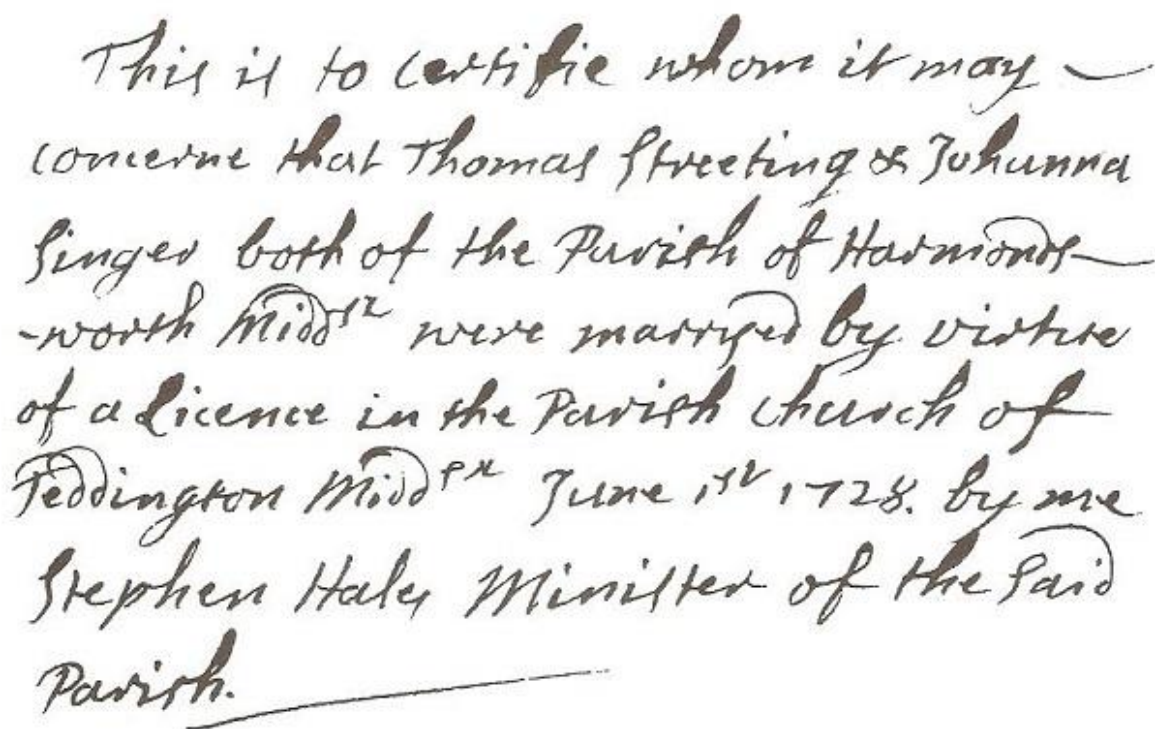 This is to certifie whom it may —
concerne that Thomas Streeting & Johanna
Singer both of the Parish of Harmonds—
-worth Midd^sx were marryed by virtue
of a Licence in the Parish church of
Teddington Midd^sx June 1^st 1728. by me
Stephen Hales Minister of the Said
Parish.